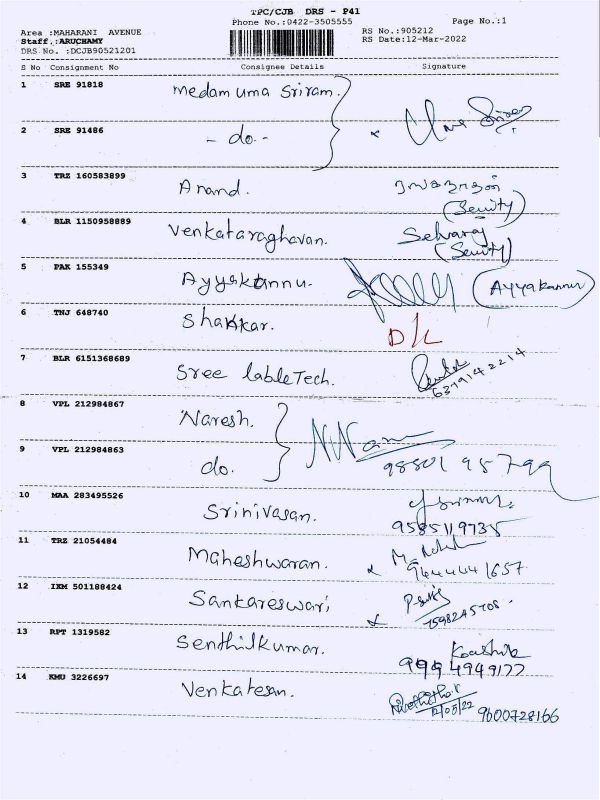 TPC/CJB DRS - P41
Phone No.:0422-3505555
Page No.:1
Area :MAHARANI AVENUE
RS No.:905212
Staff.:ARUCHAMY
RS Date:12-Mar-2022
DRS No. :DCJB90521201
S No Consignment No Consignee Details Signature
1 SRE 91818 Medam uma Sriram.
2 SRE 91486 - do. - x Uma
3 TRZ 160583899 Anand.
(Seurity)
4 BLR 1150958889 Venkataraghavan. Selvaraj
(Seurity)
5 PAK 155349 Ayyakannu. (Ayyakannu)
6 TNJ 648740 Shankar. D/L
7 BLR 6151368689 Sree lable Tech.
6379142214
8 VPL 212984867 Naresh.
9 VPL 212984863 do. 98801 95799
10 MAA 283495526 Srinivasan.
9585119735
11 TRZ 21054484 Maheshwaran. x
9644441657
12 IKM 501188424 Sankareswari x
7598245708.
13 RPT 1319582 Senthilkumar. Koushik
9994949177
14 KMU 3226697 Venkatesan.
12/03/22 9600728166